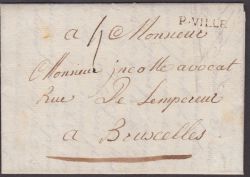 P.VILLE
a Monsieur
Monsieur jacotte avocat
Rue De Lempereur
a Bruxcelles